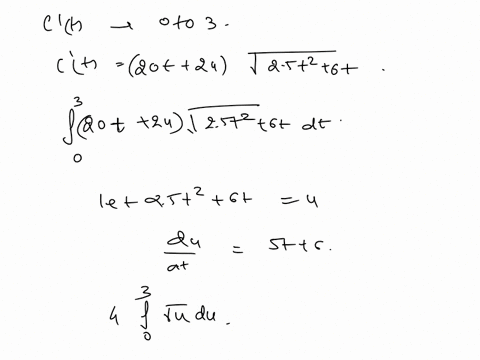 C'(t) → 0 to 3.
C'(t) = (20t + 24) √2.5t² + 6t .
∫₀³ (20t + 24) √2.5t² + 6t dt.
let 2.5t² + 6t = u
du/dt = 5t + 6.
4 ∫₀³ √u du.